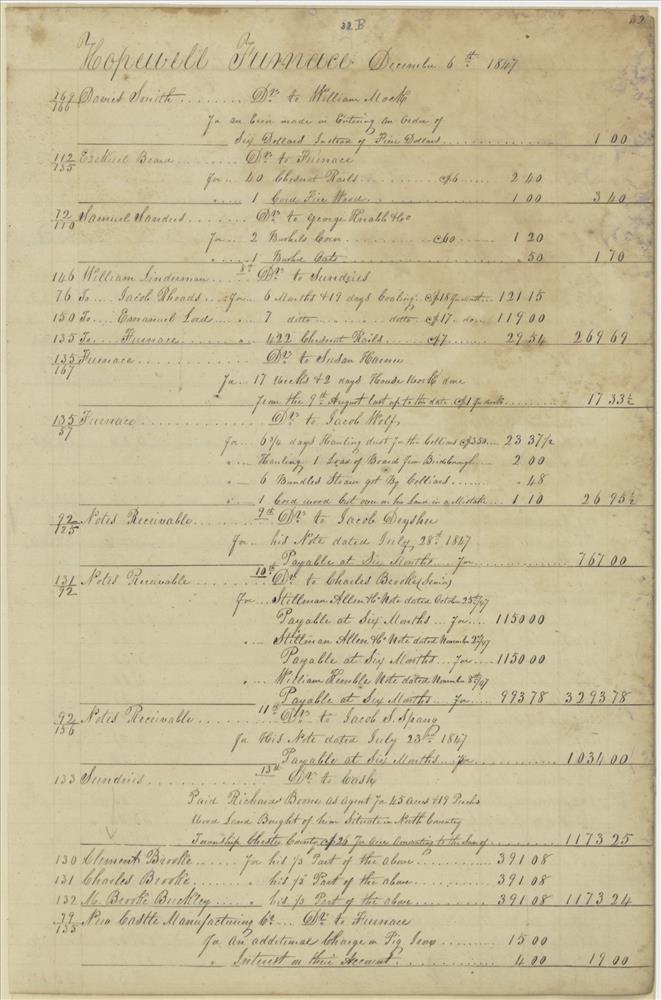 32 B
32
Hopewell Furnace December 6th 1847
169/166 David Smith ........ Dr to William Mock
For an Error made in Entering an Order of
Six Dollars Instead of Five Dollars 1 00
112/135 Ezekiel Beard ........ Dr to Furnace
For .. 40 Chesnut Rails ........ c/p 6 ..... 2 40
" .... 1 Cord Fire Wood ........ 1 00 3 40
72/110 Samuel Sanders ....... Dr to George & Co
For ... 2 Bushels Corn ........ c60 ...... 1 20
" .... 1 Bushel Oats ........ . 50 1 70
146 William Linderman .... 8th Dr to Sundries
76 To .... Jacob Rhoads .. For ... 6 Months & 19 days Coaling c/p 18 121 15
150 To .... Emanuel Lord .. " .... 7 ditto ..... ditto c/p 17 .. do ... 119 00
135 To .... Furnace .... " ... 422 Chesnut Rails ..... c/p 7 ...... 29 54 269 69
135/167 Furnace ........ Dr to Susan
For .. 17 Weeks & 2 days House Work done
from the 9th August last up to this date c/p 1 17 33½
135/37 Furnace ........ Dr to Jacob Wolf
For .. 6¾ days Hauling dust for the Colliers c/p 350 .. 23 37½
" .... Hauling 1 Load of Boards from 2 00
" .... 6 Bundles Straw got By Colliers ...... . 48
" .... 1 Cord wood Cut over on his Land in a Mistake .. 1 10 26 95½
92/125 Notes Receivable ........ 9th Dr to Jacob
For .. his Note dated July 28th 1847
Payable at Six Months ... For ........ 767 00
131/92 Notes Receivable ....... 10th Dr to Charles Brooke (Senior)
For ... Stillman Allen & Co Note dated October 25th/47
Payable at Six Months ... For .... 1150 00
" .... Stillman Allen & Co Note dated November 2d/47
Payable at Six Months ... For .... 1150 00
" .... William Note dated November 8th/47
Payable at Six Months ... For .... 993 78 3293 78
92/156 Notes Receivable ....... 11th Dr to Jacob S. Spang
For His Note dated July 23d 1847
Payable at Six Months ... For ........ 1034 00
133 Sundries ........ 13th Dr to Cash
Paid Richard Boone as Agent for 45 Acres & 19 Perches
Wood Land Bought of him Situate in North Coventry
Township Chester County c/p 26 For Acre Amounting to the Sum of ...... 1173 25
130 Clement Brooke .... For his ⅓ Part of the above ........ 391 08
131 Charles Brooke ..... " his ⅓ Part of the above ........ 391 08
132 M. Brooke Buckley .... " his ⅓ Part of the above ........ 391 08 1173 24
79/135 New Castle Manufacturing Co ... Dr to Furnace
For an additional Charge on Pig Iron ........ 15 00
" Interest on their Account ........ 4 00 19 00